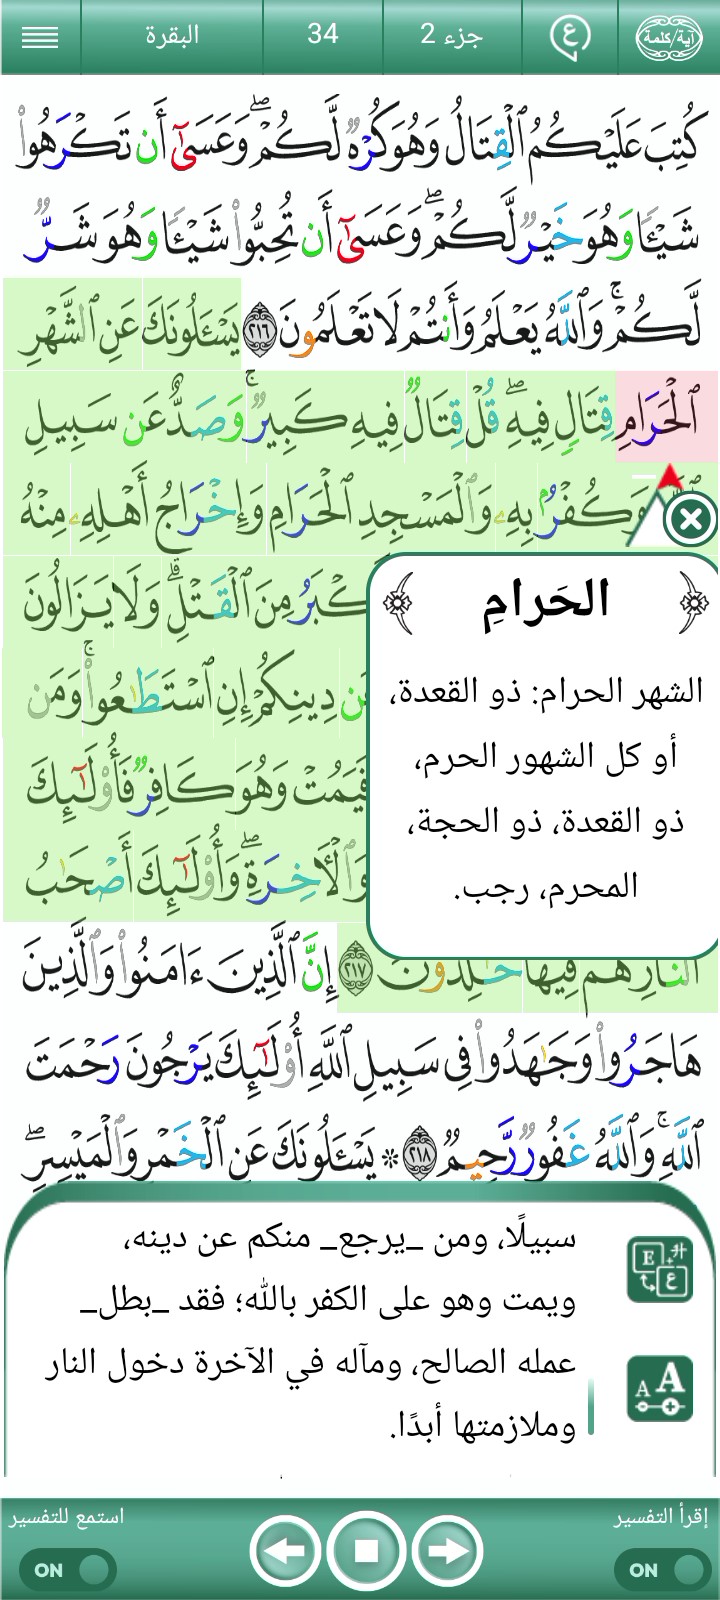 آية/كلمة
ع
جزء 2
34
البقرة
كُتِبَ عَلَيْكُمُ ٱلْقِتَالُ وَهُوَ كُرْهٌۭ لَّكُمْ ۖ وَعَسَىٰٓ أَن تَكْرَهُوا۟
شَيْـًۭٔا وَهُوَ خَيْرٌۭ لَّكُمْ ۖ وَعَسَىٰٓ أَن تُحِبُّوا۟ شَيْـًۭٔا وَهُوَ شَرٌّۭ
لَّكُمْ ۗ وَٱللَّهُ يَعْلَمُ وَأَنتُمْ لَا تَعْلَمُونَ ٢١٦ يَسْـَٔلُونَكَ عَنِ ٱلشَّهْرِ
ٱلْحَرَامِ قِتَالٍۢ فِيهِ ۖ قُلْ قِتَالٌۭ فِيهِ كَبِيرٌۭ ۚ وَصَدٌّ عَن سَبِيلِ
وَكُفْرٌۢ بِهِۦ وَٱلْمَسْجِدِ ٱلْحَرَامِ وَإِخْرَاجُ أَهْلِهِۦ مِنْهُ
مِنَ ٱلْقَتْلِ ۗ وَلَا يَزَالُونَ
دِينِكُمْ إِنِ ٱسْتَطَـٰعُوا۟ ۚ وَمَن
فَيَمُتْ وَهُوَ كَافِرٌۭ فَأُو۟لَـٰٓئِكَ
وَٱلْـَٔاخِرَةِ ۖ وَأُو۟لَـٰٓئِكَ أَصْحَـٰبُ
ٱلنَّارِ هُمْ فِيهَا خَـٰلِدُونَ ٢١٧ إِنَّ ٱلَّذِينَ ءَامَنُوا۟ وَٱلَّذِينَ
هَاجَرُوا۟ وَجَـٰهَدُوا۟ فِى سَبِيلِ ٱللَّهِ أُو۟لَـٰٓئِكَ يَرْجُونَ رَحْمَتَ
ٱللَّهِ ۚ وَٱللَّهُ غَفُورٌۭ رَّحِيمٌۭ ٢١٨ ۞ يَسْـَٔلُونَكَ عَنِ ٱلْخَمْرِ وَٱلْمَيْسِرِ ۖ
﴿ الحَرامِ ﴾
الشهر الحرام: ذو القعدة،
أو كل الشهور الحرم،
ذو القعدة، ذو الحجة،
المحرم، رجب.
سبيلًا، ومن _يرجع_ منكم عن دينه،
ويمت وهو على الكفر بالله؛ فقد _بطل_
عمله الصالح، ومآله في الآخرة دخول النار
وملازمتها أبدًا.
E ع
A A
إقرأ التفسير
ON
استمع للتفسير
ON